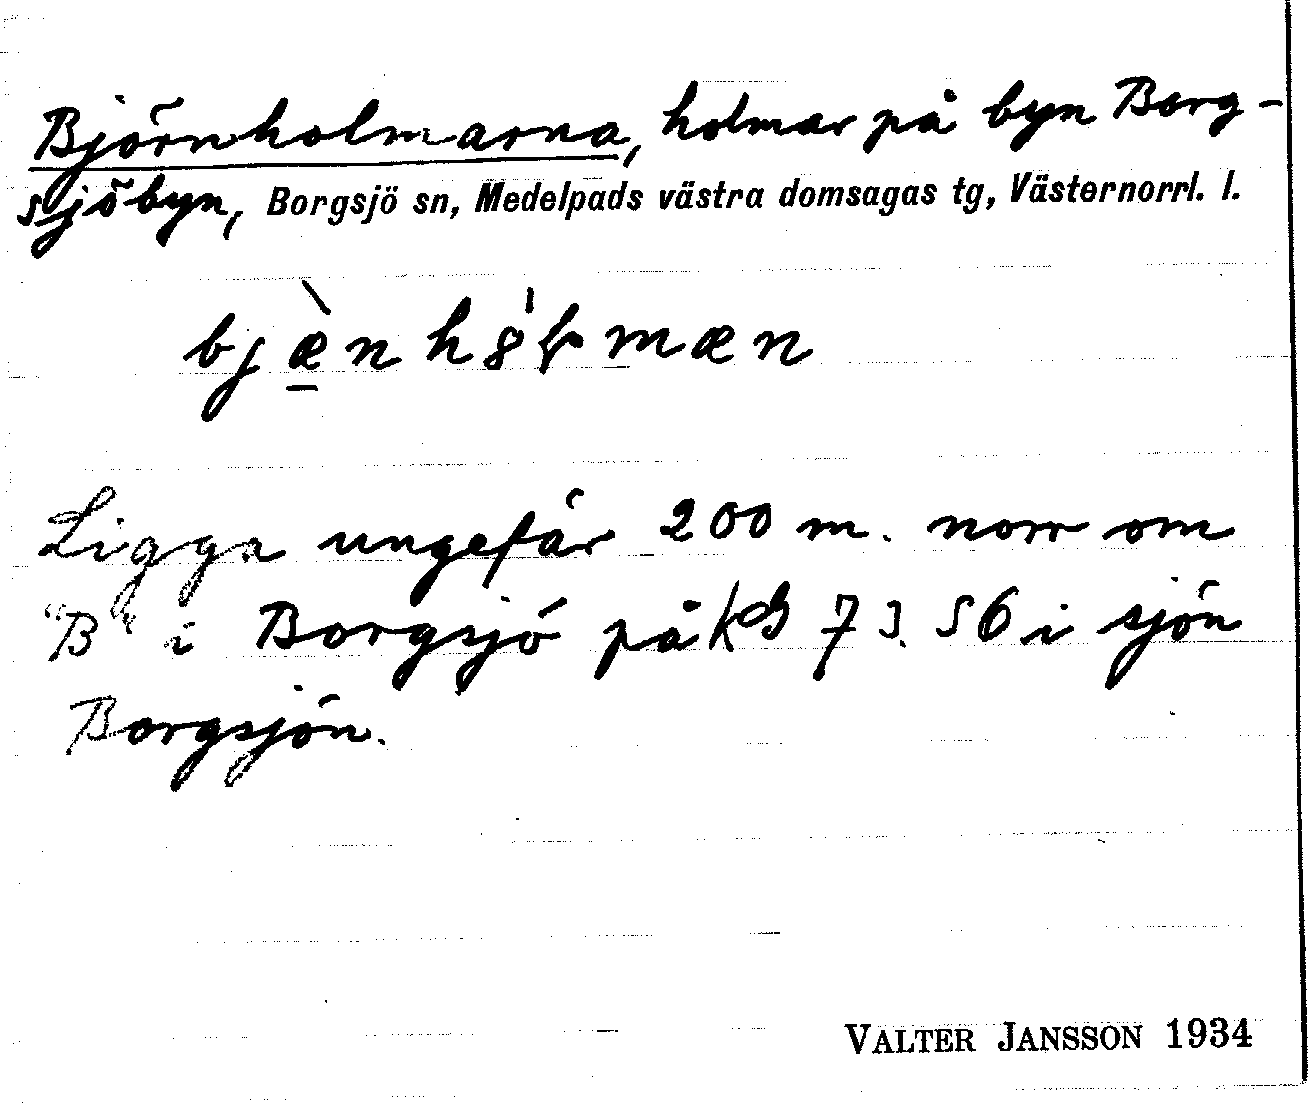 Björnholmarna, holmar på byn Borg-
sjöbyn, Borgsjö sn, Medelpads västra domsagas tg, Västernorrl. l.
Ligga ungefär 200 m. norr om
"B" i Borgsjö på kbl 73. 56 i sjön
Borgsjön.
VALTER JANSSON 1934